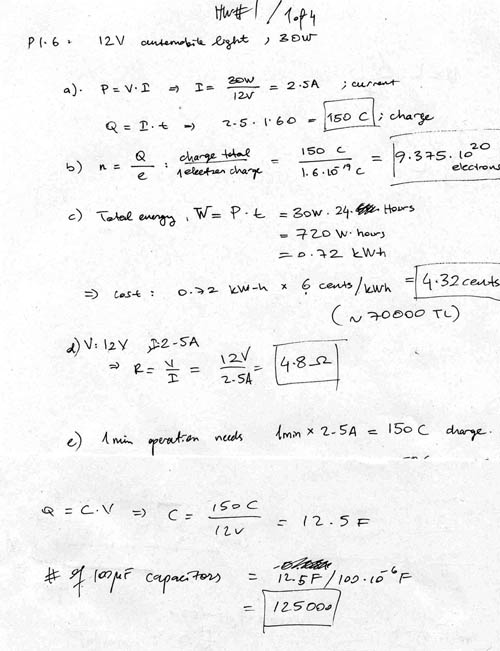 HW#1 / 1 of 4
P1.6 : 12V automobile light, 30W
a). P = V·I ⇒ I = 30W/12V = 2.5A ; current
Q = I·t ⇒ 2.5·1·60 = 150 C ; charge
b) n = Q/e : charge total/1 electron charge = 150 C/1.6·10⁻¹⁹ C = 9.375·10²⁰ electrons
c) Total energy, W = P·t = 30W·24 Hours
= 720 W·hours
= 0.72 kWh
⇒ cost : 0.72 kW-h × 6 cents/kWh = 4.32 cents
(~70000 TL)
d) V: 12V I: 2.5A
⇒ R = V/I = 12V/2.5A = 4.8 Ω
e) 1min operation needs 1min × 2.5A = 150 C charge.
Q = C·V ⇒ C = 150C/12V = 12.5 F
# of 100μF capacitors = 12.5F/100·10⁻⁶F
= 125000